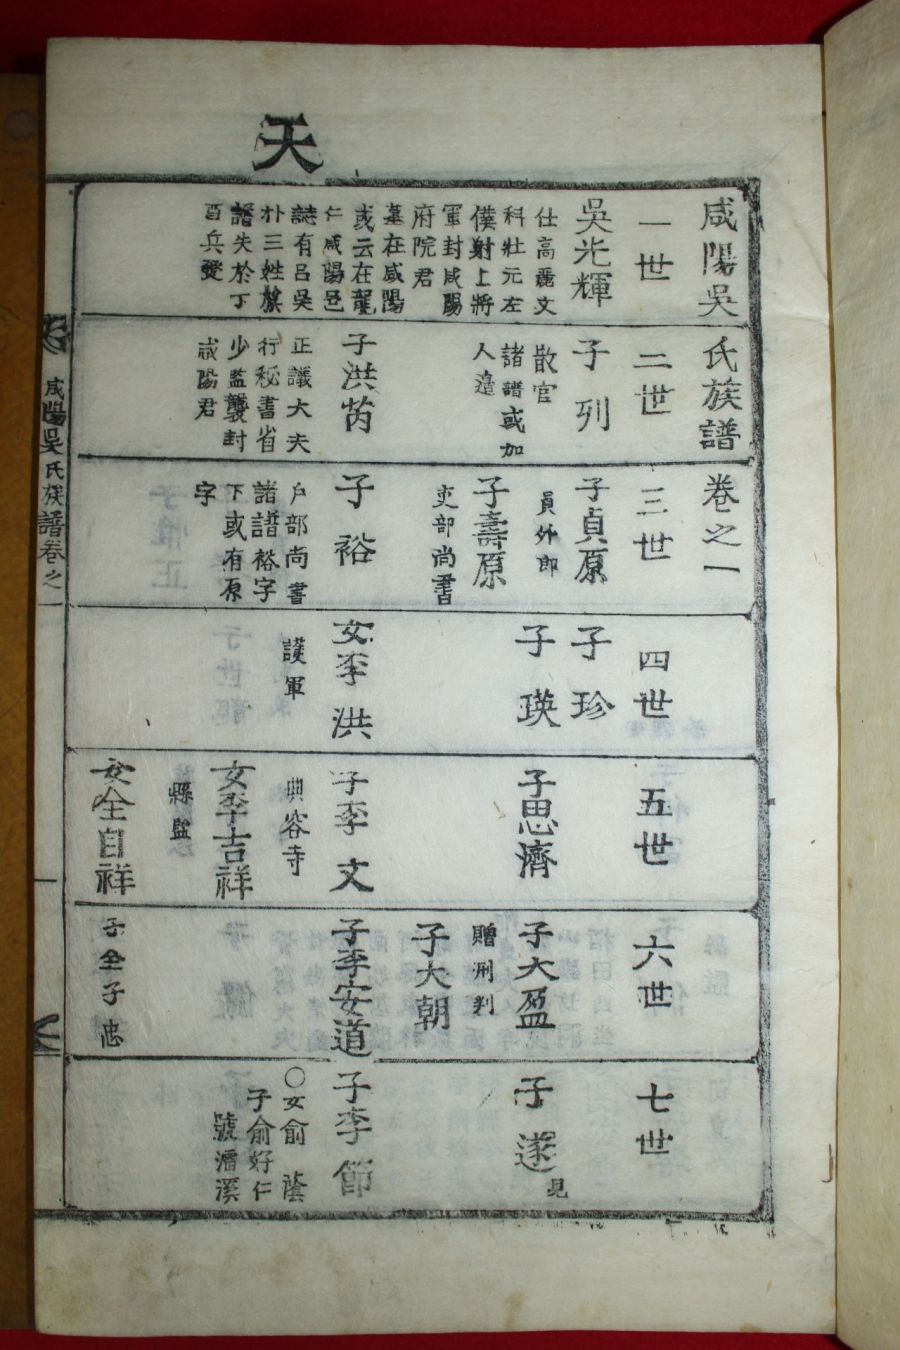 天
咸陽吳氏族譜卷之一
一世
吳光輝
仕高麗文
科壯元左
僕射上將
軍封咸陽
府院君
墓在咸陽
或云在龍
仁咸陽邑
誌有呂吳
朴三姓族
譜失於丁
酉兵燹
二世
子列
散官
諸譜或加
人邉
子洪芮
正議大夫
行秘書省
少監襲封
咸陽君
三世
子貞原
員外郎
子壽原
吏部尚書
子裕
户部尚書
諸譜裕字
下或有原
字
四世
子珍
子瑛
女李洪
護軍
五世
子思濟
子李文
典客寺
女李吉祥
縣監
女全自祥
六世
子大盈
贈刑判
子大朝
子李安道
子全子忠
七世
子遂
見
子李節
○女俞蔭
子俞好仁
號㵢溪
咸陽吳氏族譜卷之一